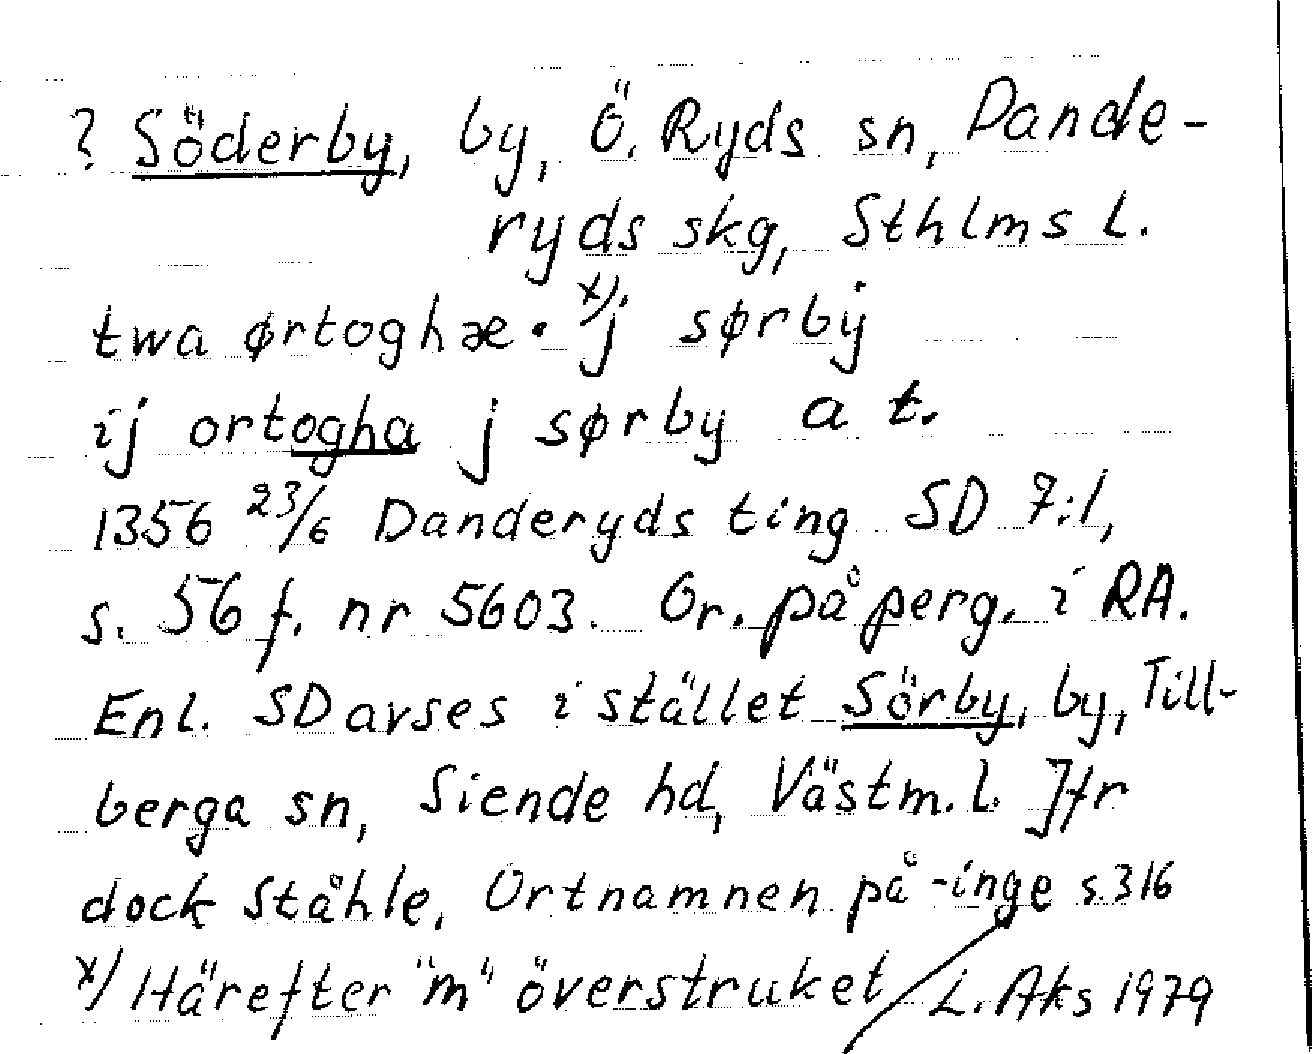 ? Söderby, by, Ö. Ryds sn, Dande-
ryds skg, Sthlms l.
twa ørtoghæ · x) j sørbÿ
ij ortogha j sørby a t.
1356 23/6 Danderyds ting SD 7:1,
s. 56 f. nr 5603. Or. på perg. i RA.
Enl. SD avses i stället Sörby, by, Till-
berga sn, Siende hd, Västm. l. Jfr
dock Ståhle, Ortnamnen på -inge s. 316
x) Härefter "m" överstruket L. Aks 1979